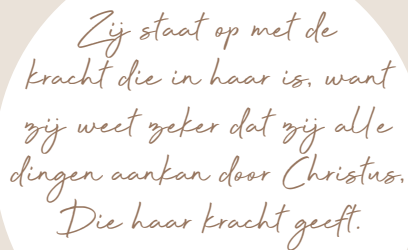 Zij staat op met de
kracht die in haar is, want
zij weet zeker dat zij alle
dingen aankan door Christus,
Die haar kracht geeft.